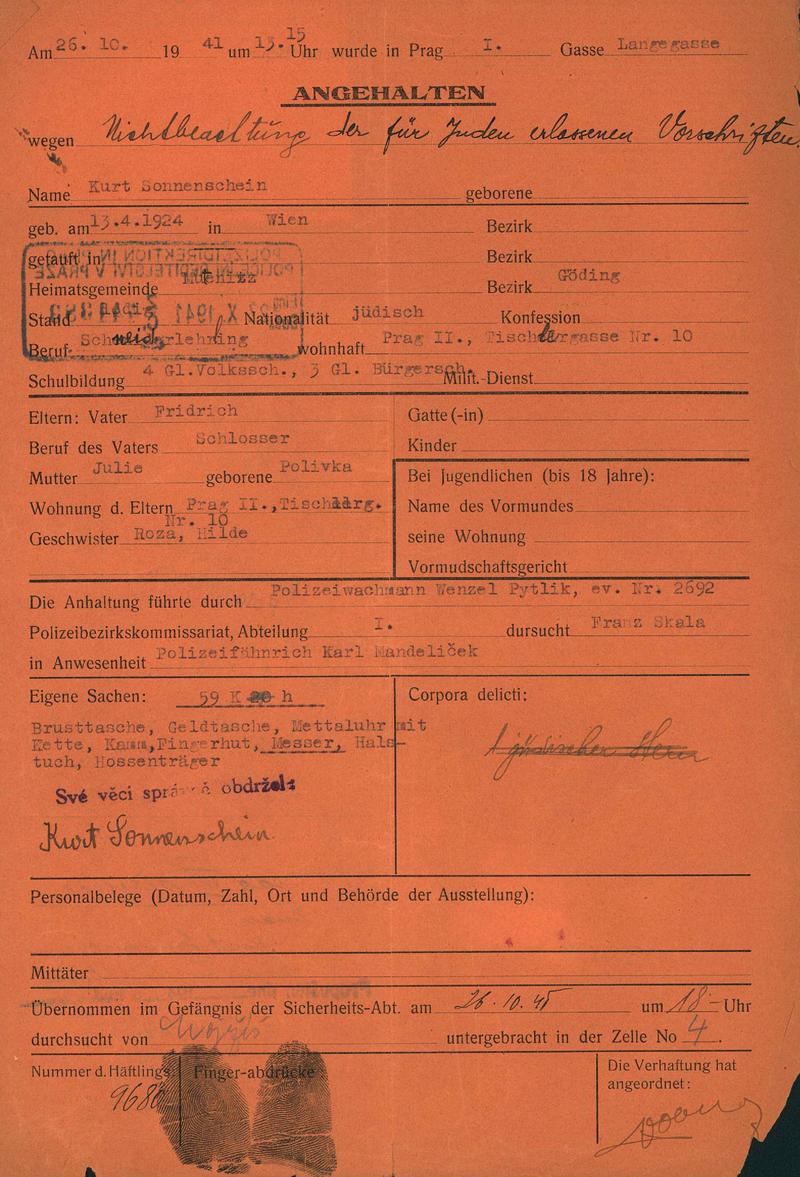 Am 26. 10. 19 41 um 15.15 Uhr wurde in Prag I. Gasse Langegasse
ANGEHALTEN
wegen Nichtbeachtung der für Juden erlassenen Vorschriften.
Name Kurt Sonnenschein geborene
geb. am 13.4.1924 in Wien Bezirk
getauft in Bezirk
Heimatsgemeinde Bezirk Göding
Stand Nationalität jüdisch Konfession
Beruf Schneiderlehrling wohnhaft Prag II., Tischlergasse Nr. 10
Schulbildung 4 Gl.Volkssch., 3 Gl. Bürgersch. Milit.-Dienst
Eltern: Vater Fridrich
Beruf des Vaters Schlosser
Mutter Julie geborene Polivka
Wohnung d. Eltern Prag II.,
Nr. 10
Geschwister Roza, Hilde
Gatte (-in)
Kinder
Bei Jugendlichen (bis 18 Jahre):
Name des Vormundes
seine Wohnung
Vormudschaftsgericht
Die Anhaltung führte durch Polizeiwachmann Wenzel Pytlik, ev. Nr. 2692
Polizeibezirkskommissariat, Abteilung I. dursucht Franz Skala
in Anwesenheit Polizeifähnrich Karl Mandelíček
Eigene Sachen: 59 K h
Brusttasche, Geldtasche, Mettaluhr mit
Kette, Kamm,Fingerhut, Messer, Hals-
tuch, Hossenträger
Své věci správně obdržel:
Kurt Sonnenschein
Corpora delicti:
1
Personalbelege (Datum, Zahl, Ort und Behörde der Ausstellung):
Mittäter
Übernommen im Gefängnis der Sicherheits-Abt. am 26. 10. 41 um 18 - Uhr
durchsucht von untergebracht in der Zelle No 4.
Nummer d. Häftlings
Finger-abdrücke
Die Verhaftung hat
angeordnet: